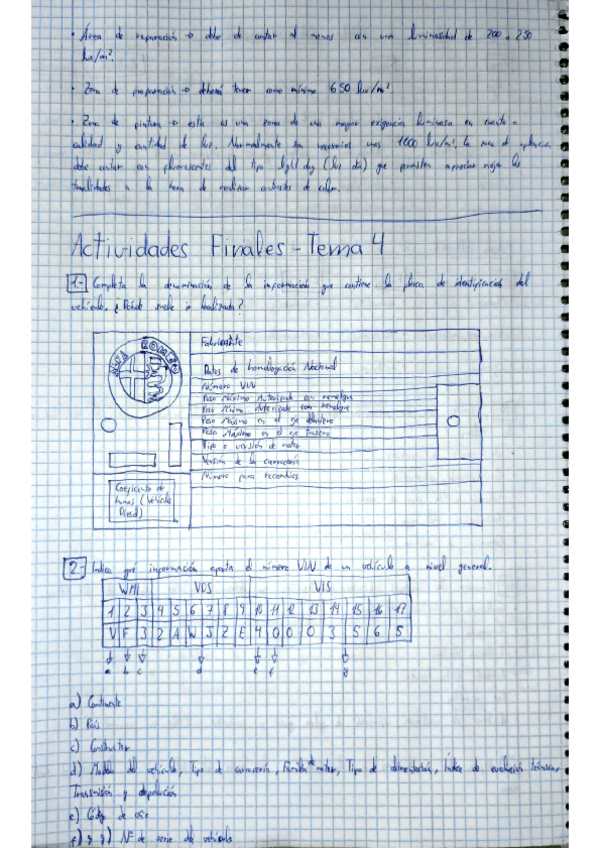 · Área de reparación → debe de contar al menos con una luminosidad de 200 a 250
lux/m².
· Zona de preparación → deberá tener como mínimo 650 lux/m².
· Zona de pintura → esta es una zona de una mayor exigencia luminosa en cuanto a
calidad y cantidad de luz. Normalmente son necesarios unos 1000 lux/m², la zona de aplicación
debe contar con fluorescentes del tipo light day (luz día) que permiten apreciar mejor las
tonalidades a la hora de realizar contrastes de color.
Actividades Finales - Tema 4
1.- Completa la denominación de la información que contiene la placa de identificación del
vehículo. ¿Dónde suele ir localizada?
ALFA ROMEO
Fabricante
Datos de homologación Nacional
Número VIN
Peso Máximo Autorizado con remolque
Peso Máximo en el eje delantero
Peso Máximo en el eje trasero
Tipo o versión de motor
Versión de la carrocería
Número para recambios
Coeficiente de
humos (Vehículo
Diésel)
2.- Indica qué información aporta el número VIN de un vehículo a nivel general.
WMI VDS VIS
1 2 3 4 5 6 7 8 9 10 11 12 13 14 15 16 17
V F 3 2 A W J Z E 4 0 0 0 3 5 6 5
a b c d e f g
a) Continente
b) País
c) Constructor
d) Modelo del vehículo, Tipo de carrocería, Familia de motor, Tipo de alimentación, Índice de evolución técnica,
Transmisión y depolución
e) Código de año
f) y g) Nº de serie del vehículo